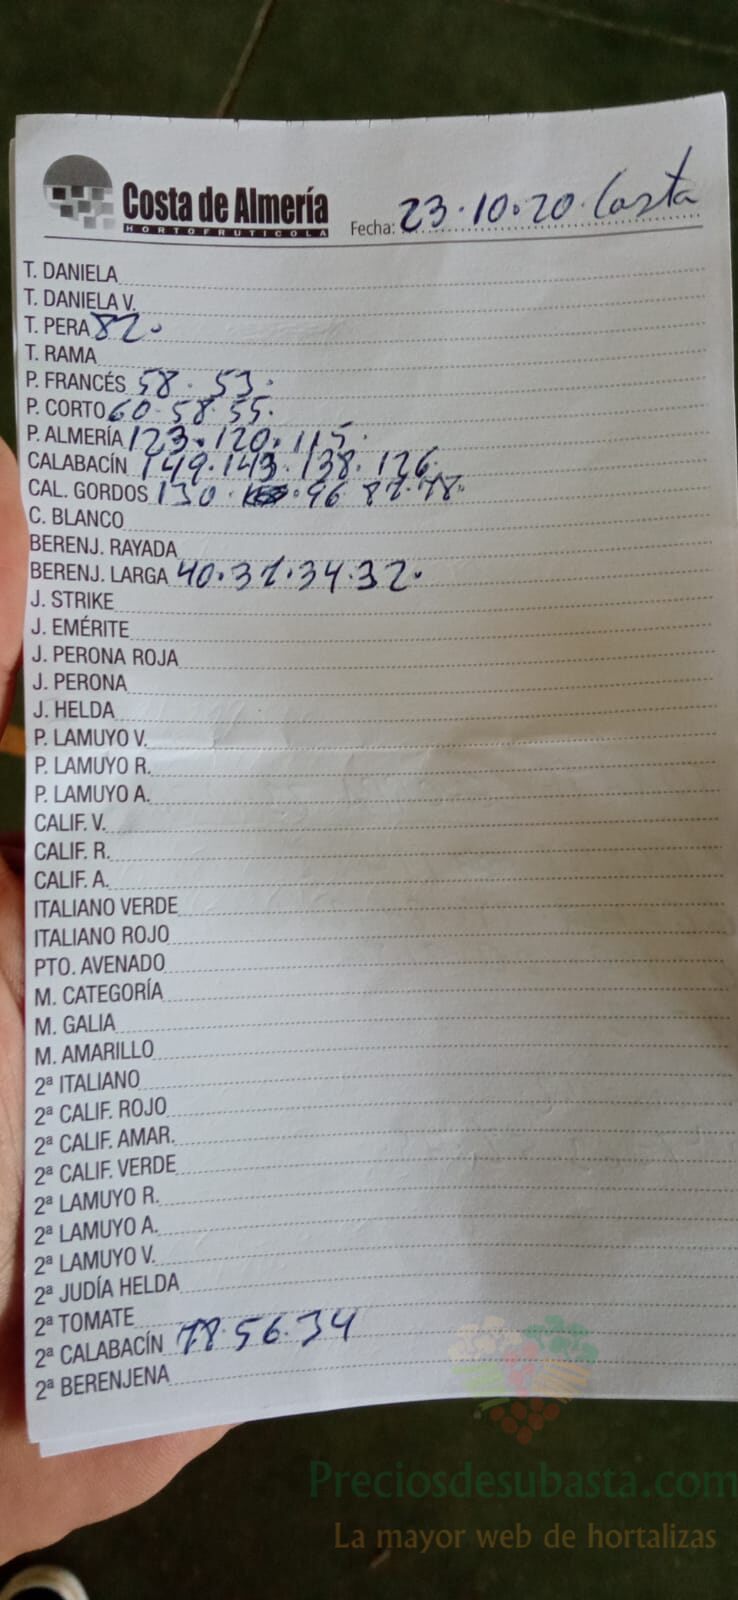 Costa de Almería
HORTOFRUTICOLA
Fecha: 23.10.20. Costa
T. DANIELA
T. DANIELA V.
T. PERA 82.
T. RAMA
P. FRANCÉS 58. 53.
P. CORTO 60. 58. 55.
P. ALMERÍA 123. 120. 115.
CALABACÍN 149. 143. 138. 126.
CAL. GORDOS 130. 96 87. 78.
C. BLANCO
BERENJ. RAYADA
BERENJ. LARGA 40. 37. 34. 32.
J. STRIKE
J. EMÉRITE
J. PERONA ROJA
J. PERONA
J. HELDA
P. LAMUYO V.
P. LAMUYO R.
P. LAMUYO A.
CALIF. V.
CALIF. R.
CALIF. A.
ITALIANO VERDE
ITALIANO ROJO
PTO. AVENADO
M. CATEGORÍA
M. GALIA
M. AMARILLO
2ª ITALIANO
2ª CALIF. ROJO
2ª CALIF. AMAR.
2ª CALIF. VERDE
2ª LAMUYO R.
2ª LAMUYO A.
2ª LAMUYO V.
2ª JUDÍA HELDA
2ª TOMATE
2ª CALABACÍN 78. 56. 34
2ª BERENJENA
Preciosdesubasta.com
La mayor web de hortalizas